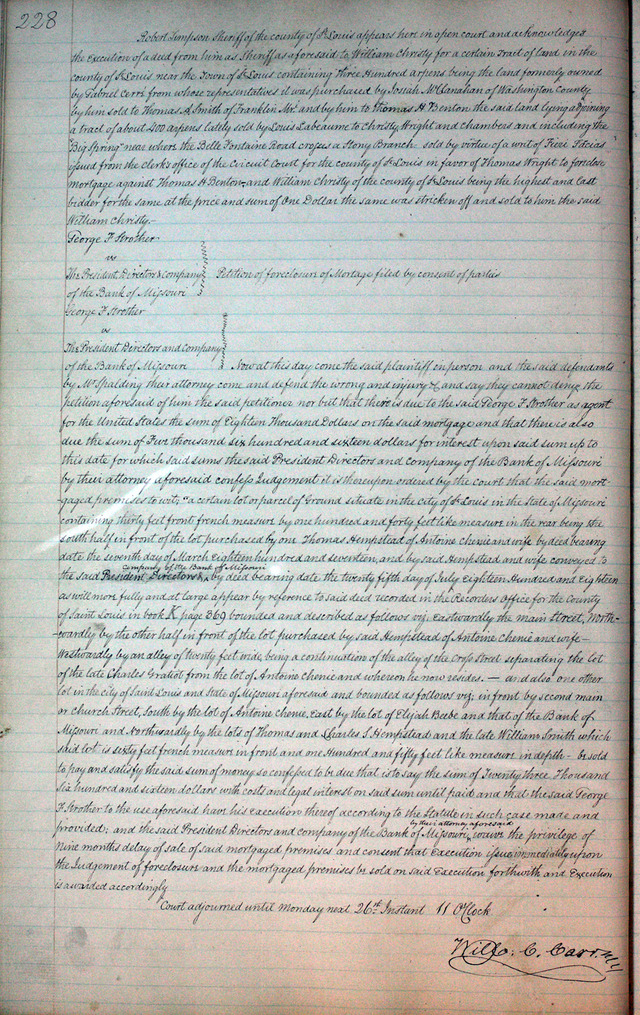 228
Robert Simpson Sheriff of the county of St Louis appears here in open court and acknowledges
the Execution of a deed from him as Sheriff as aforesaid to William Christy for a certain Tract of land in the
county of St Louis near the Town of St Louis containing Three Hundred arpens being the land formerly owned
by Gabriel Cerri from whose representatives it was purchased by Josiah McClanahan of Washington County
by him sold to Thomas A Smith of Franklin Mr. and by him to Thomas H Benton the said land lying adjoining
a tract of about 400 arpens lately sold by Louis Labeaume to Christy, Wright and Chambers and including the
"Big Spring" near where the Belle Fontaine Road crosses a Stony Branch sold by virtue of a writ of Fieri Facias
issued from the clerks office of the Circuit Court for the county of St Louis in favor of Thomas Wright to foreclose
mortgage against Thomas H Benton, and William Christy of the county of St Louis being the highest and last
bidder for the same at the price and sum of One Dollar the same was stricken off and sold to him the said
William Christy.—
George F Strother
vs
The President, Directors & company
of the Bank of Missouri
Petition of foreclosun of Mortage filed by consent of parties
George F Strother
vs
The President Directors and Company
of the Bank of Missouri
Now at this day come the said plaintiff in person and the said defendants
by Mr Spalding their attorney come and defend the wrong and injury &c and say they cannot deny the
petition aforesaid of him the said petitioner nor but that there is due to the said George F Strother as agent
for the United States the sum of Eighteen Thousand Dollars on the said mortgage and that there is also
due the sum of Five thousand six hundred and sixteen dollars for interest upon said sum up to
this date for which said sums the said President Directors and Company of the Bank of Missouri
by their attorney aforesaid confess Judgement it is thereupon ordered by the court that the said mort-
gaged premises to wit; "a certain lot or parcel of Ground situate in the city of St Louis in the State of Missouri
containing thirty feet front french measure by one hundred and forty feet like measure in the rear being the
south half in front of the lot purchased by one Thomas Hempstead of Antoine Chenie and wife by deed bearing
date the seventh day of March Eighteen hundred and seventeen, and by said Hempstead and wife conveyed to
Company of the Bank of Missouri
the said President Directors & by deed bearing date the twenty fifth day of July Eighteen Hundred and Eighteen
as will more fully and at large appear by reference to said deed recorded in the Recorders Office for the County
of Saint Louis in book K page 369 bounded and described as follows viz. Eastwardly the main Street, North-
wardly by the other half in front of the lot purchased by said Hempstead of Antoine Chenie and wife—
Westwardly by an alley of twenty feet wide, being a continuation of the alley of the Cross Street separating the lot
of the late Charles Gratiot from the lot of Antoine Chenie and whereon he now resides. — and also one other
lot in the city of Saint Louis and State of Missouri aforesaid and bounded as follows viz; in front by second main
or church Street, South by the lot of Antoine Chenie, East by the lot of Elijah Beebe and that of the Bank of
Missouri and Northwardly by the lots of Thomas and Charles S. Hempstead and the late William Smith which
said lot is sixty feet french measure in front and one Hundred and fifty feet like measure in depth — be sold
to pay and satisfy the said sum of money so confessed to be due that is to say the sum of Twenty three Thousand
six hundred and sixteen dollars with costs and legal interest on said sum until paid and that the said George
F Strother to the use aforesaid have his execution thereof according to the Statute in such case made and
by their attorney aforesaid
provided; and the said President Directors and company of the Bank of Missouri, waive the privilege of
nine months delay of sale of said mortgaged premises and consent that Execution issue immediately upon
the Judgement of foreclosure and the mortgaged premises be sold on said Execution forthwith and Execution
is awarded accordingly
Court adjourned until Monday next 26th Instant 11 O'Clock
Wilfo. C. Carr